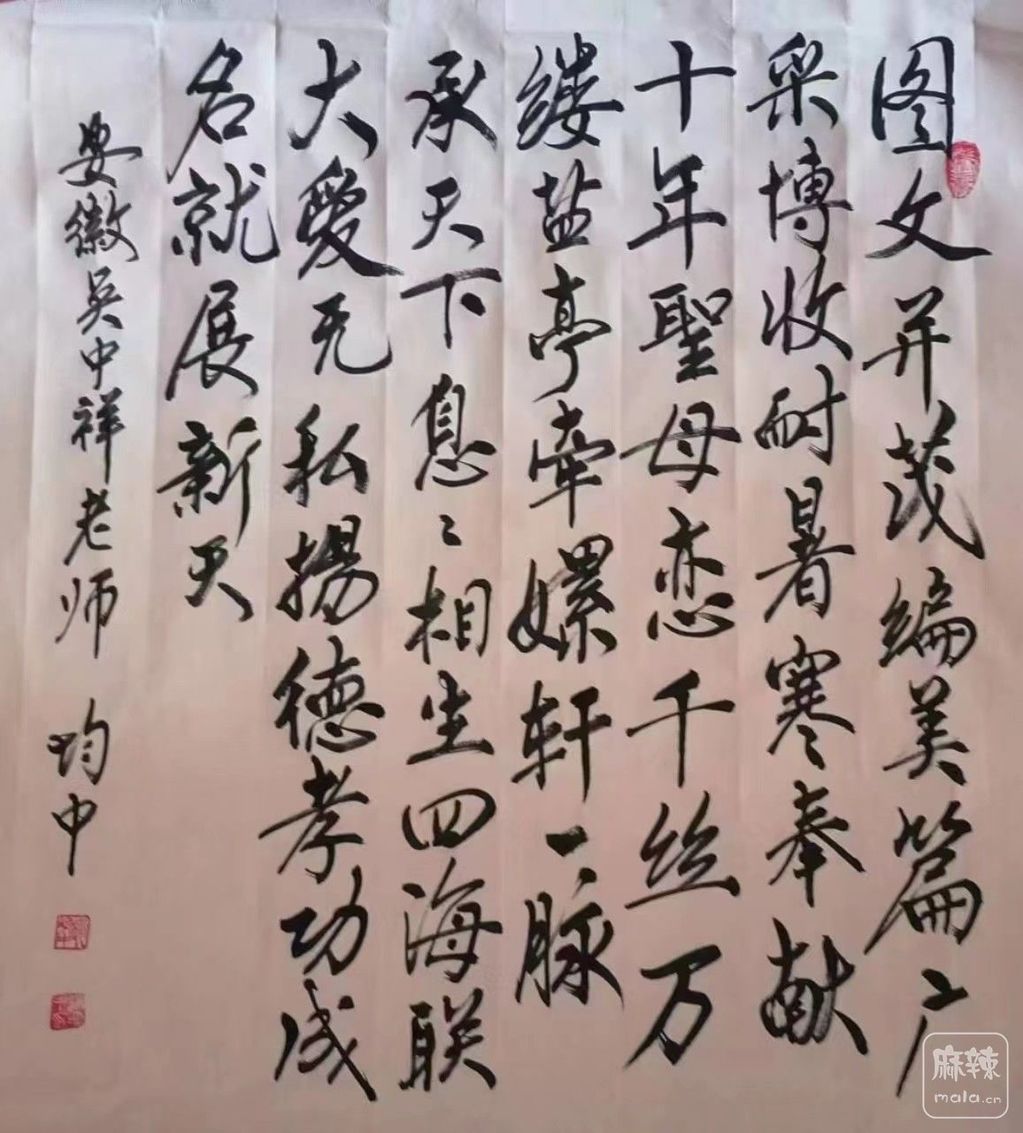 图文并茂编美篇广
采博收耐暑寒奉献
十年聖母恋千丝万
缕盐亭牵嫘轩一脉
承天下息々相生四海联
大愛无私揚德孝功成
名就展新天
安徽吴中祥老师 均中
麻辣
mala.cn